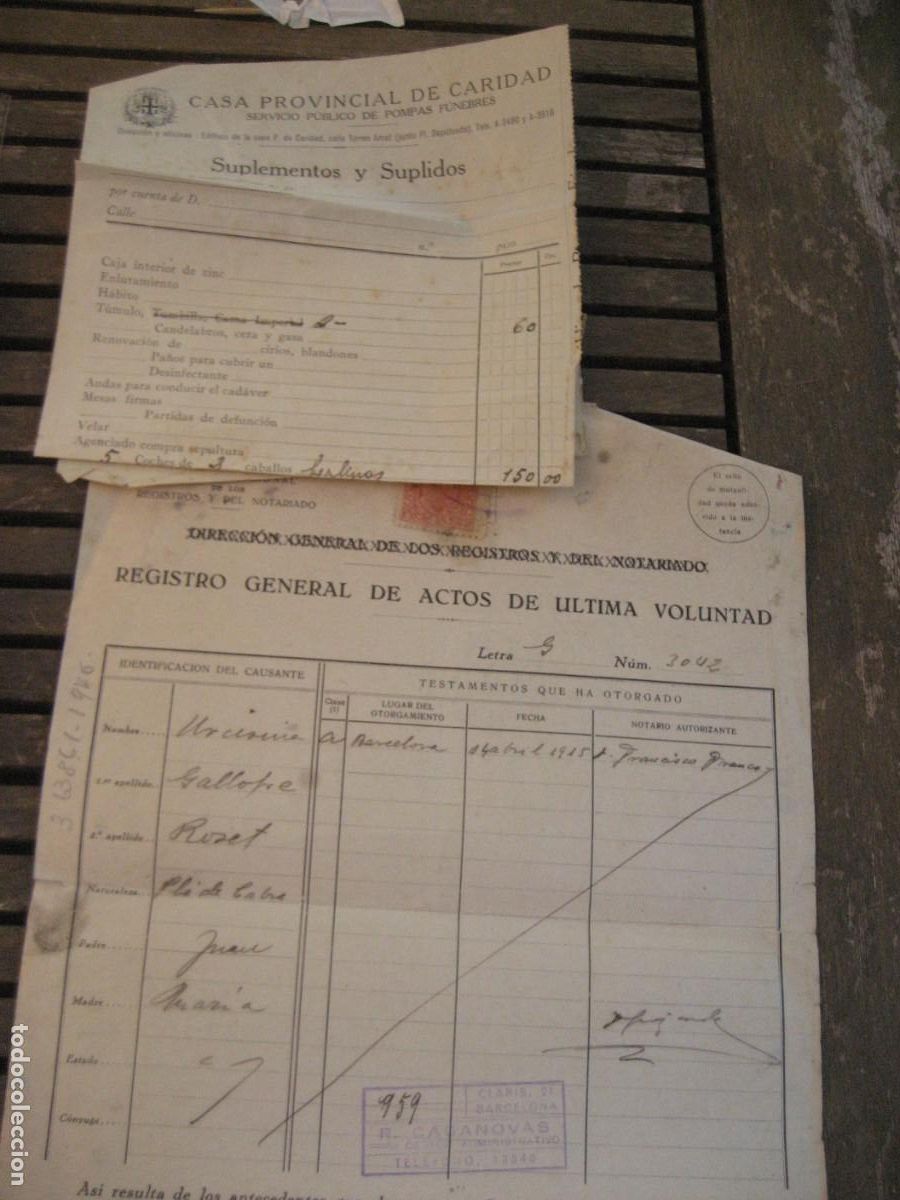 CASA PROVINCIAL DE CARIDAD
SERVICIO PÚBLICO DE POMPAS FÚNEBRES
Dirección y oficinas : Edificio de la casa P. de Caridad, calle Torres Amat
Suplementos y Suplidos
por cuenta de D.
Calle
n.º piso
Pesetas Cts.
Caja interior de zinc
Enlutamiento
Hábito
Túmulo, Tumbilla, Cama Imperial 2- 60
Candelabros, cera y gasa
Renovación de cirios, blandones
Paños para cubrir un
Desinfectante
Andas para conducir el cadáver
Mesas firmas
Partidas de defunción
Velar
Agenciado compra sepultura
5 Coches de 2 caballos 150 00
DE LOS
REGISTROS Y DEL NOTARIADO
El sello
de mutuali-
dad queda adhe-
rido a la ins-
tancia
DIRECCIÓN GENERAL DE LOS REGISTROS Y DEL NOTARIADO
REGISTRO GENERAL DE ACTOS DE ULTIMA VOLUNTAD
Letra G Núm. 3042
IDENTIFICACION DEL CAUSANTE
TESTAMENTOS QUE HA OTORGADO
Clase (1)
LUGAR DEL OTORGAMIENTO
FECHA
NOTARIO AUTORIZANTE
Nombre
a Barcelona abril 1915 D. Francisco
1.er apellido. Gallofre
2.º apellido. Roset
Naturaleza. Plá de Cabra
Padre Juan
Madre María
Estado
Cónyuge
959
CLARIS,
BARCELONA
R. CASANOVAS
ADMINISTRATIVO
TELÉFONO,
Así resulta de los antecedentes
todocoleccion